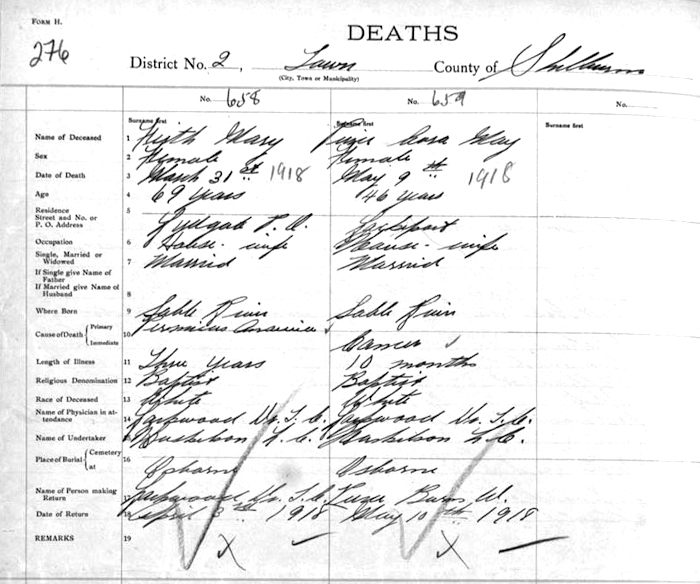 FORM H.
DEATHS
276
District No. 2, Town County of Shelburne
(City, Town or Municipality)
No. 658 No. 659 No.
Surname first Surname first Surname first
Name of Deceased 1 Mary Cora May
Sex 2 Female Female
Date of Death 3 March 31st 1918 May 9th 1918
Age 4 69 years 46 years
Residence
Street and No. or
P. O. Address 5 Lockeport
Occupation 6 House-wife House-wife
Single, Married or
Widowed 7 Married Married
If Single give Name of
Father
If Married give Name of
Husband 8
Where Born 9 Sable River Sable River
Cause of Death Primary 10
Immediate Cancer
Length of Illness 11 Three years 10 months
Religious Denomination 12 Baptist Baptist
Race of Deceased 13 White White
Name of Physician in at-
tendance 14 Lockwood Dr. T. C. Lockwood Dr. T. C.
Name of Undertaker
Place of Burial Cemetery 16
at Osborne Osborne
Name of Person making
Return 17 Lockwood Dr. T. C.
Date of Return 18 April 3rd 1918 May 10th 1918
REMARKS 19 X – X –